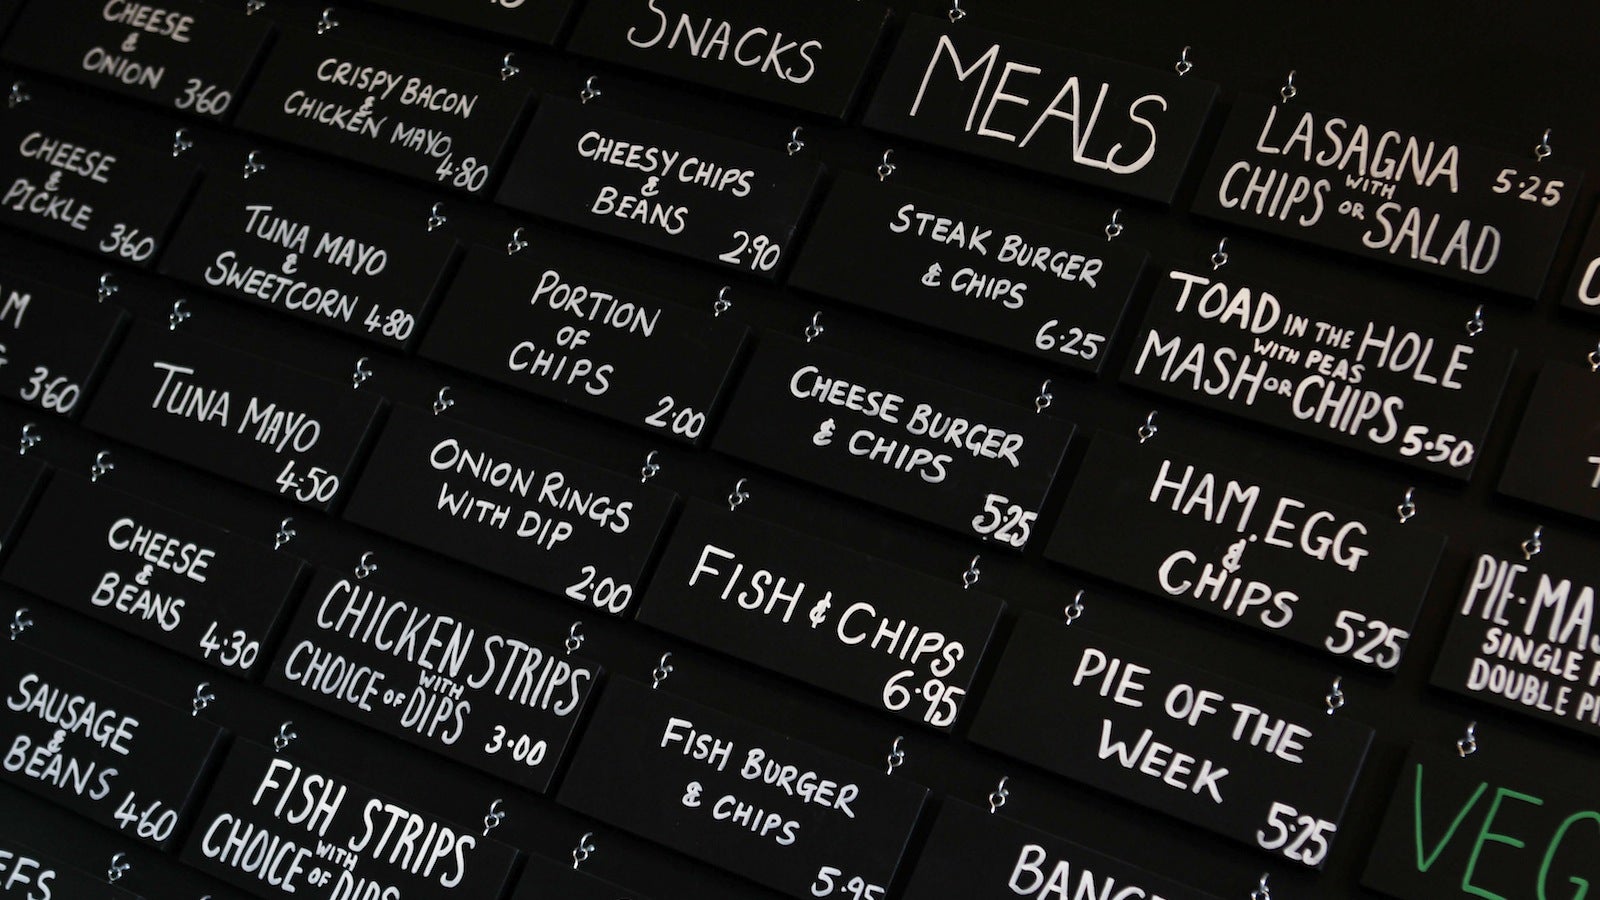 CHEESE
&
ONION 3·60
CHEESE
&
PICKLE 3·60
3·60
CRISPY BACON
&
CHICKEN MAYO 4·80
TUNA MAYO
&
SWEETCORN 4·80
TUNA MAYO
4·50
CHEESE
&
BEANS 4·30
SAUSAGE
&
BEANS 4·60
SNACKS
CHEESY CHIPS
&
BEANS
2·90
PORTION
OF
CHIPS
2·00
ONION RINGS
WITH DIP
2·00
CHICKEN STRIPS
WITH
CHOICE OF DIPS 3·00
FISH STRIPS
WITH
CHOICE OF DIPS
MEALS
STEAK BURGER
& CHIPS
6·25
CHEESE BURGER
& CHIPS
5·25
FISH & CHIPS
6·95
FISH BURGER
& CHIPS
5·95
LASAGNA 5·25
WITH
CHIPS OR SALAD
TOAD IN THE HOLE
WITH PEAS
MASH OR CHIPS 5·50
HAM, EGG
&
CHIPS 5·25
PIE OF THE
WEEK
5·25
SINGLE
DOUBLE